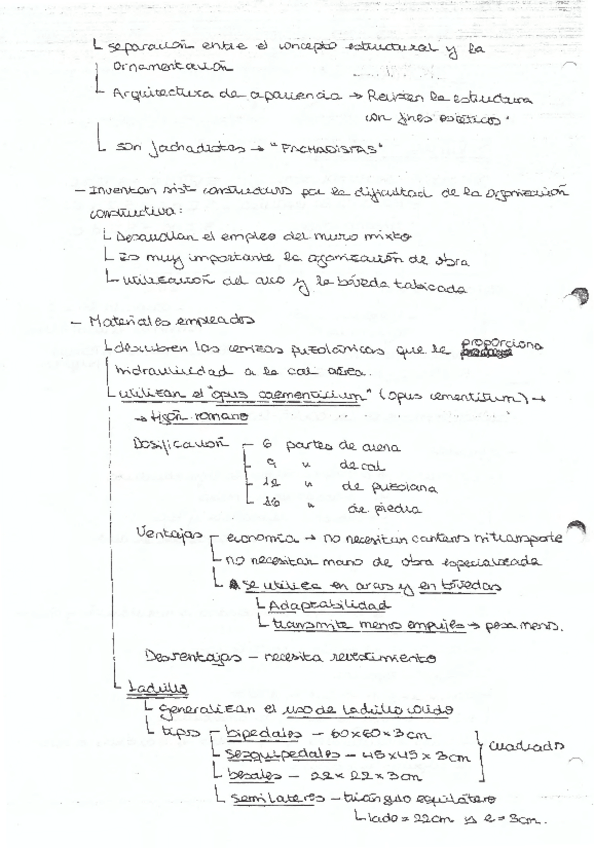 separación entre el concepto estructural y la
ornamentación
Arquitectura de apariencia → Revisten la estructura
con fines estéticos.
son fachadistas → "FACHADISTAS"
- Inventan sist constructivos por la dificultad de la organización
constructiva:
Desarrollan el empleo del muro mixto
Es muy importante la organización de obra
utilización del arco y la bóveda tabicada
- Materiales empleados
descubren las cenizas puzolánicas que le proporciona
hidraulicidad a la cal aérea.
utilizan el "opus caementicium" (opus cementitum) →
→ Hgón romano
Dosificación - 6 partes de arena
- 9 " de cal
- 12 " de puzolana
- 16 " de piedra
Ventajas - economía → no necesitan canteras ni transporte
no necesitan mano de obra especializada
se utiliza en arcos y en bóvedas
Adaptabilidad
transmite menos empujes → pesa menos.
Desventajas - necesita revestimiento
Ladrillo
generalizan el uso de ladrillo cocido
tipos - bipedales - 60x60x3cm
sesquipedales - 45x45x3cm } cuadrado
besales - 22x22x3cm
semilateres - triángulo equilátero
lado = 22cm y e = 3cm.